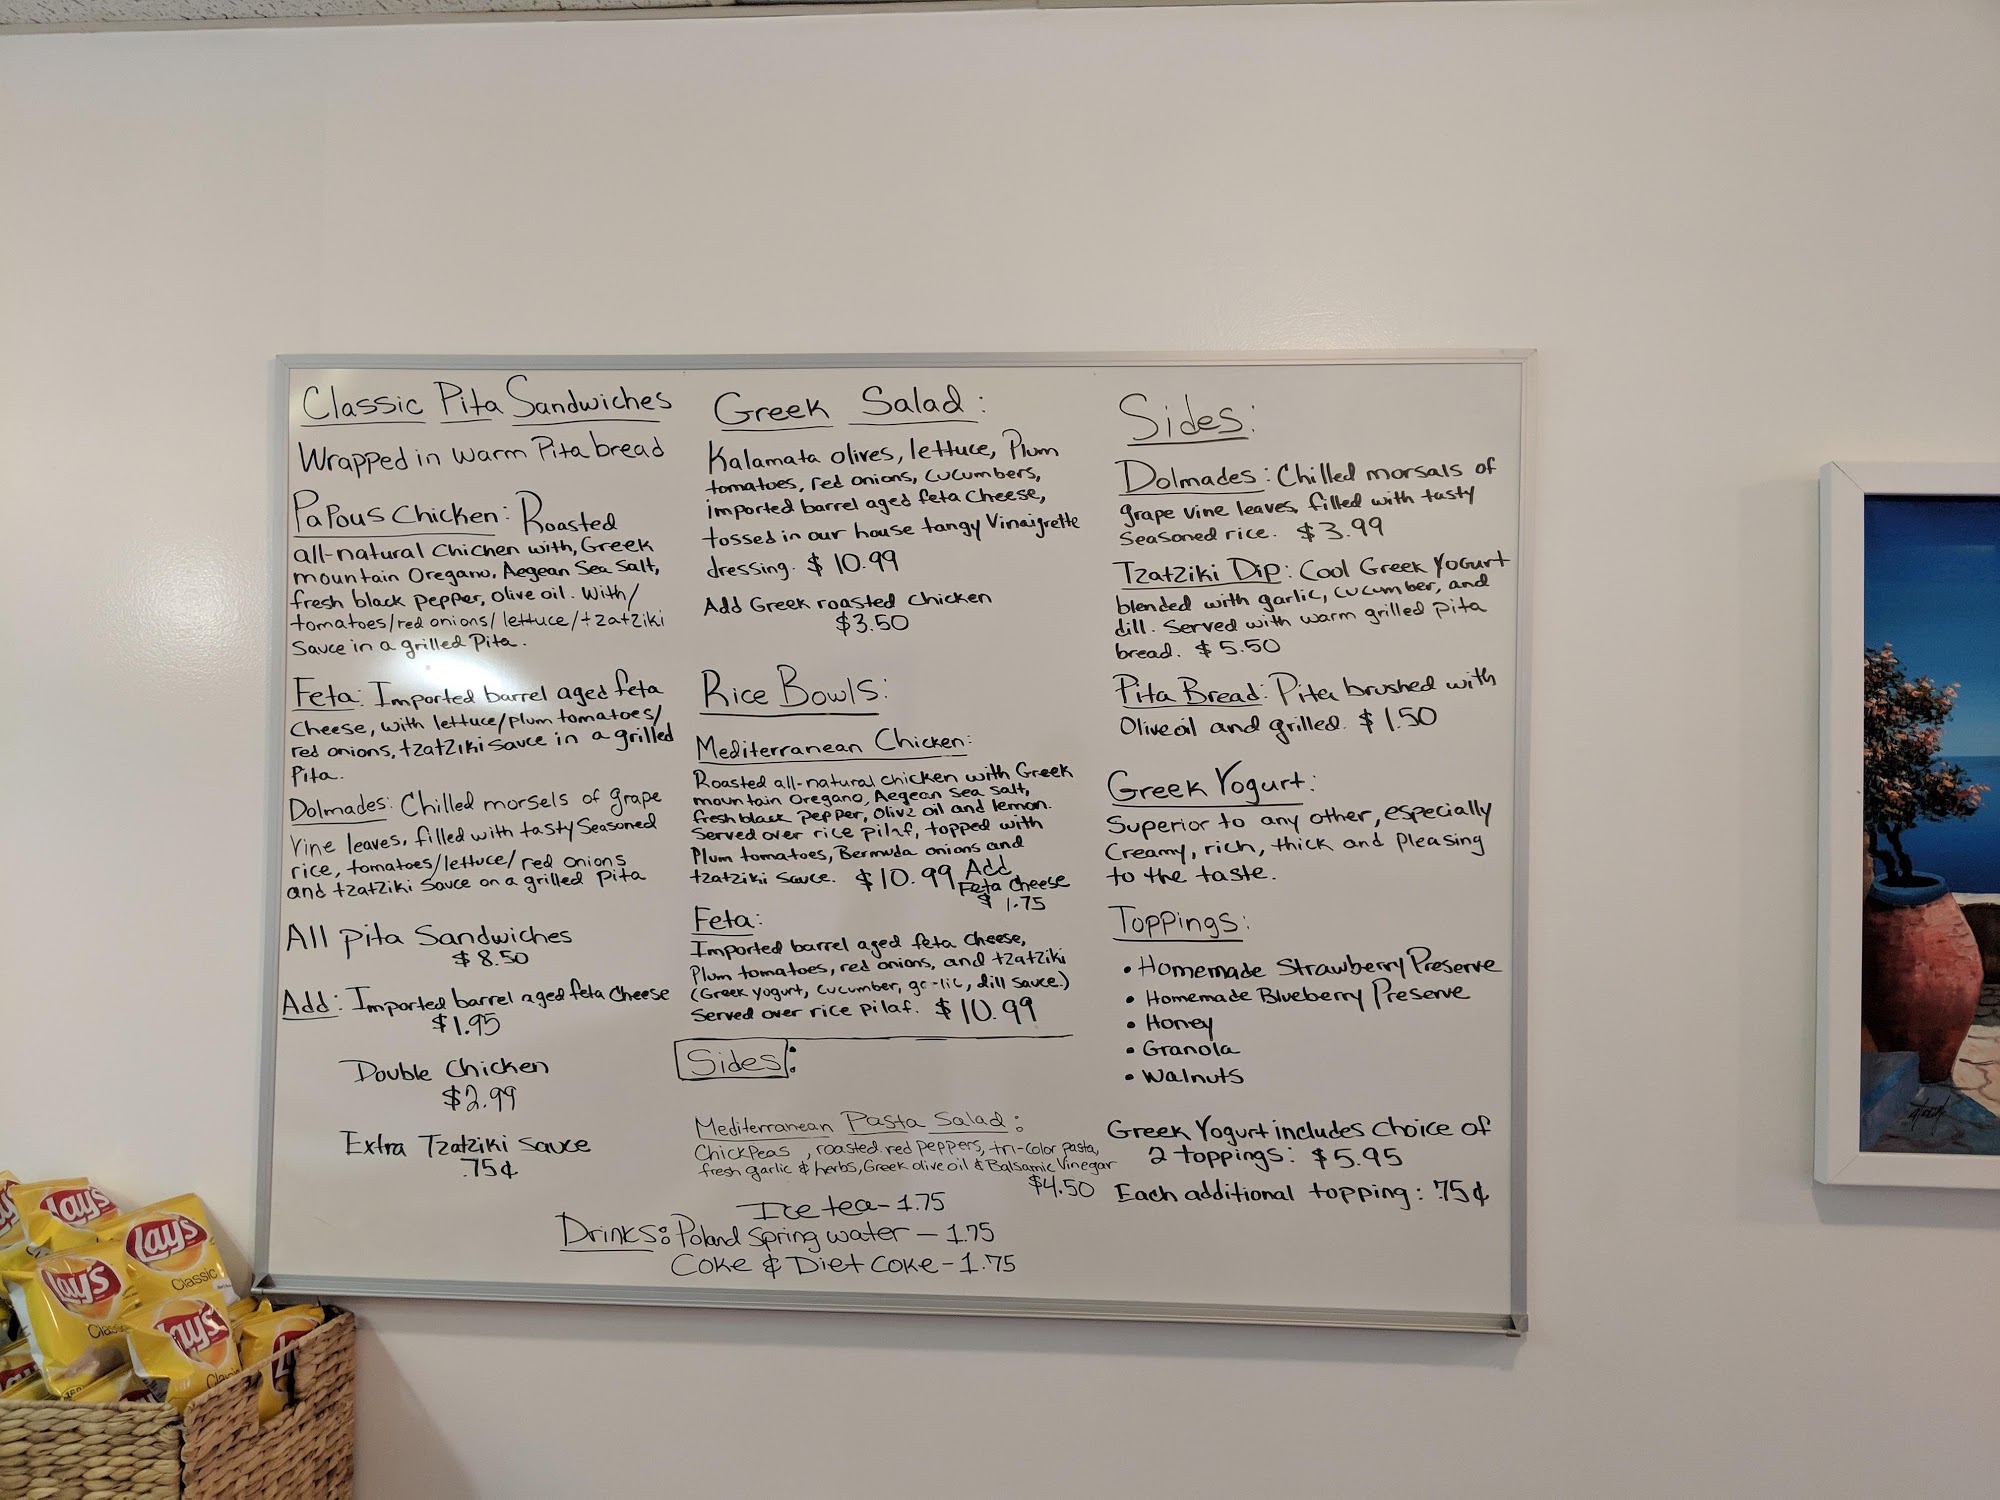 Classic Pita Sandwiches
Wrapped in warm Pita bread
Papous Chicken: Roasted
all-natural Chicken with, Greek
mountain Oregano, Aegean Sea Salt,
fresh black pepper, olive oil. With/
tomatoes/red onions/lettuce/tzatziki
Sauce in a grilled Pita.
Feta: Imported barrel aged feta
Cheese, with lettuce/plum tomatoes/
red onions, tzatziki sauce in a grilled
Pita.
Dolmades: Chilled morsels of grape
Vine leaves, filled with tasty Seasoned
rice, tomatoes/lettuce/red onions
and tzatziki Sauce on a grilled Pita
All pita Sandwiches
$8.50
Add: Imported barrel aged feta Cheese
$1.95
Double Chicken
$2.99
Extra Tzatziki sauce
.75¢
Greek Salad:
Kalamata olives, lettuce, Plum
tomatoes, red onions, cucumbers,
imported barrel aged feta Cheese,
tossed in our house tangy Vinaigrette
dressing. $10.99
Add Greek roasted chicken
$3.50
Rice Bowls:
Mediterranean Chicken:
Roasted all-natural chicken with Greek
mountain Oregano, Aegean Sea Salt,
fresh black Pepper, Olive oil and lemon.
Served over rice pilaf, topped with
Plum tomatoes, Bermuda onions and
tzatziki sauce. $10.99 Add
Feta Cheese
$1.75
Feta:
Imported barrel aged feta Cheese,
Plum tomatoes, red onions, and tzatziki
(Greek yogurt, cucumber, ga-lic, dill sauce.)
Served over rice pilaf. $10.99
Sides:
Mediterranean Pasta Salad:
Chickpeas, roasted red peppers, tri-color pasta,
fresh garlic & herbs, Greek olive oil & Balsamic Vinegar
$4.50
Ice tea - 1.75
Drinks: Poland Spring water - 1.75
Coke & Diet Coke - 1.75
Sides:
Dolmades: Chilled morsals of
grape vine leaves, filled with tasty
Seasoned rice. $3.99
Tzatziki Dip: Cool Greek Yogurt
blended with garlic, cucumber, and
dill. Served with warm grilled pita
bread. $5.50
Pita Bread: Pita brushed with
Olive oil and grilled. $1.50
Greek Yogurt:
Superior to any other, especially
Creamy, rich, thick and Pleasing
to the taste.
Toppings:
• Homemade Strawberry Preserve
• Homemade Blueberry Preserve
• Honey
• Granola
• Walnuts
Greek Yogurt includes Choice of
2 toppings: $5.95
Each additional topping: .75¢
Lay's
Lay's
Classic
Lay's
Classic
Lay's
Classic